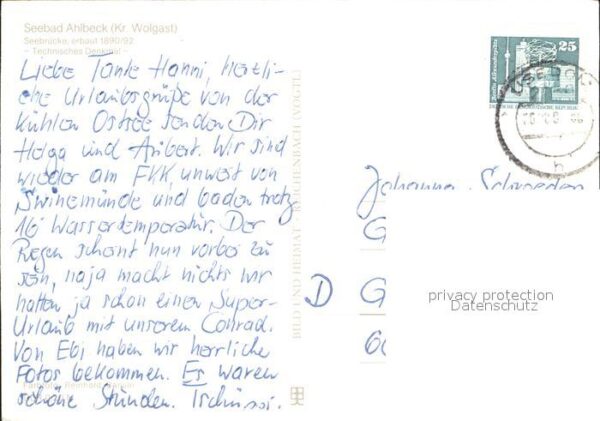 Seebad Ahlbeck (Kr. Wolgast)
Seebrücke, erbaut 1890/92
- Technisches Denkmal -
Liebe Tante Hanni, herzli-
che Urlaubsgrüße von der
kühlen Ostsee senden Dir
Helga und Aribert. Wir sind
wieder am FKK unweit von
Swinemünde und baden trotz
16° Wassertemperatur. Der
Regen scheint nun vorbei zu
sein, naja macht nichts wir
hatten ja schon einen Super-
Urlaub mit unserem Conrad.
Von Ebi haben wir herrliche
Fotos bekommen. Es waren
schöne Stunden. Tschüssi.
BILD UND HEIMAT REICHENBACH (VOGTL)
25
USEDOM
Johanna Schroeder
G
D G
privacy protection
Datenschutz